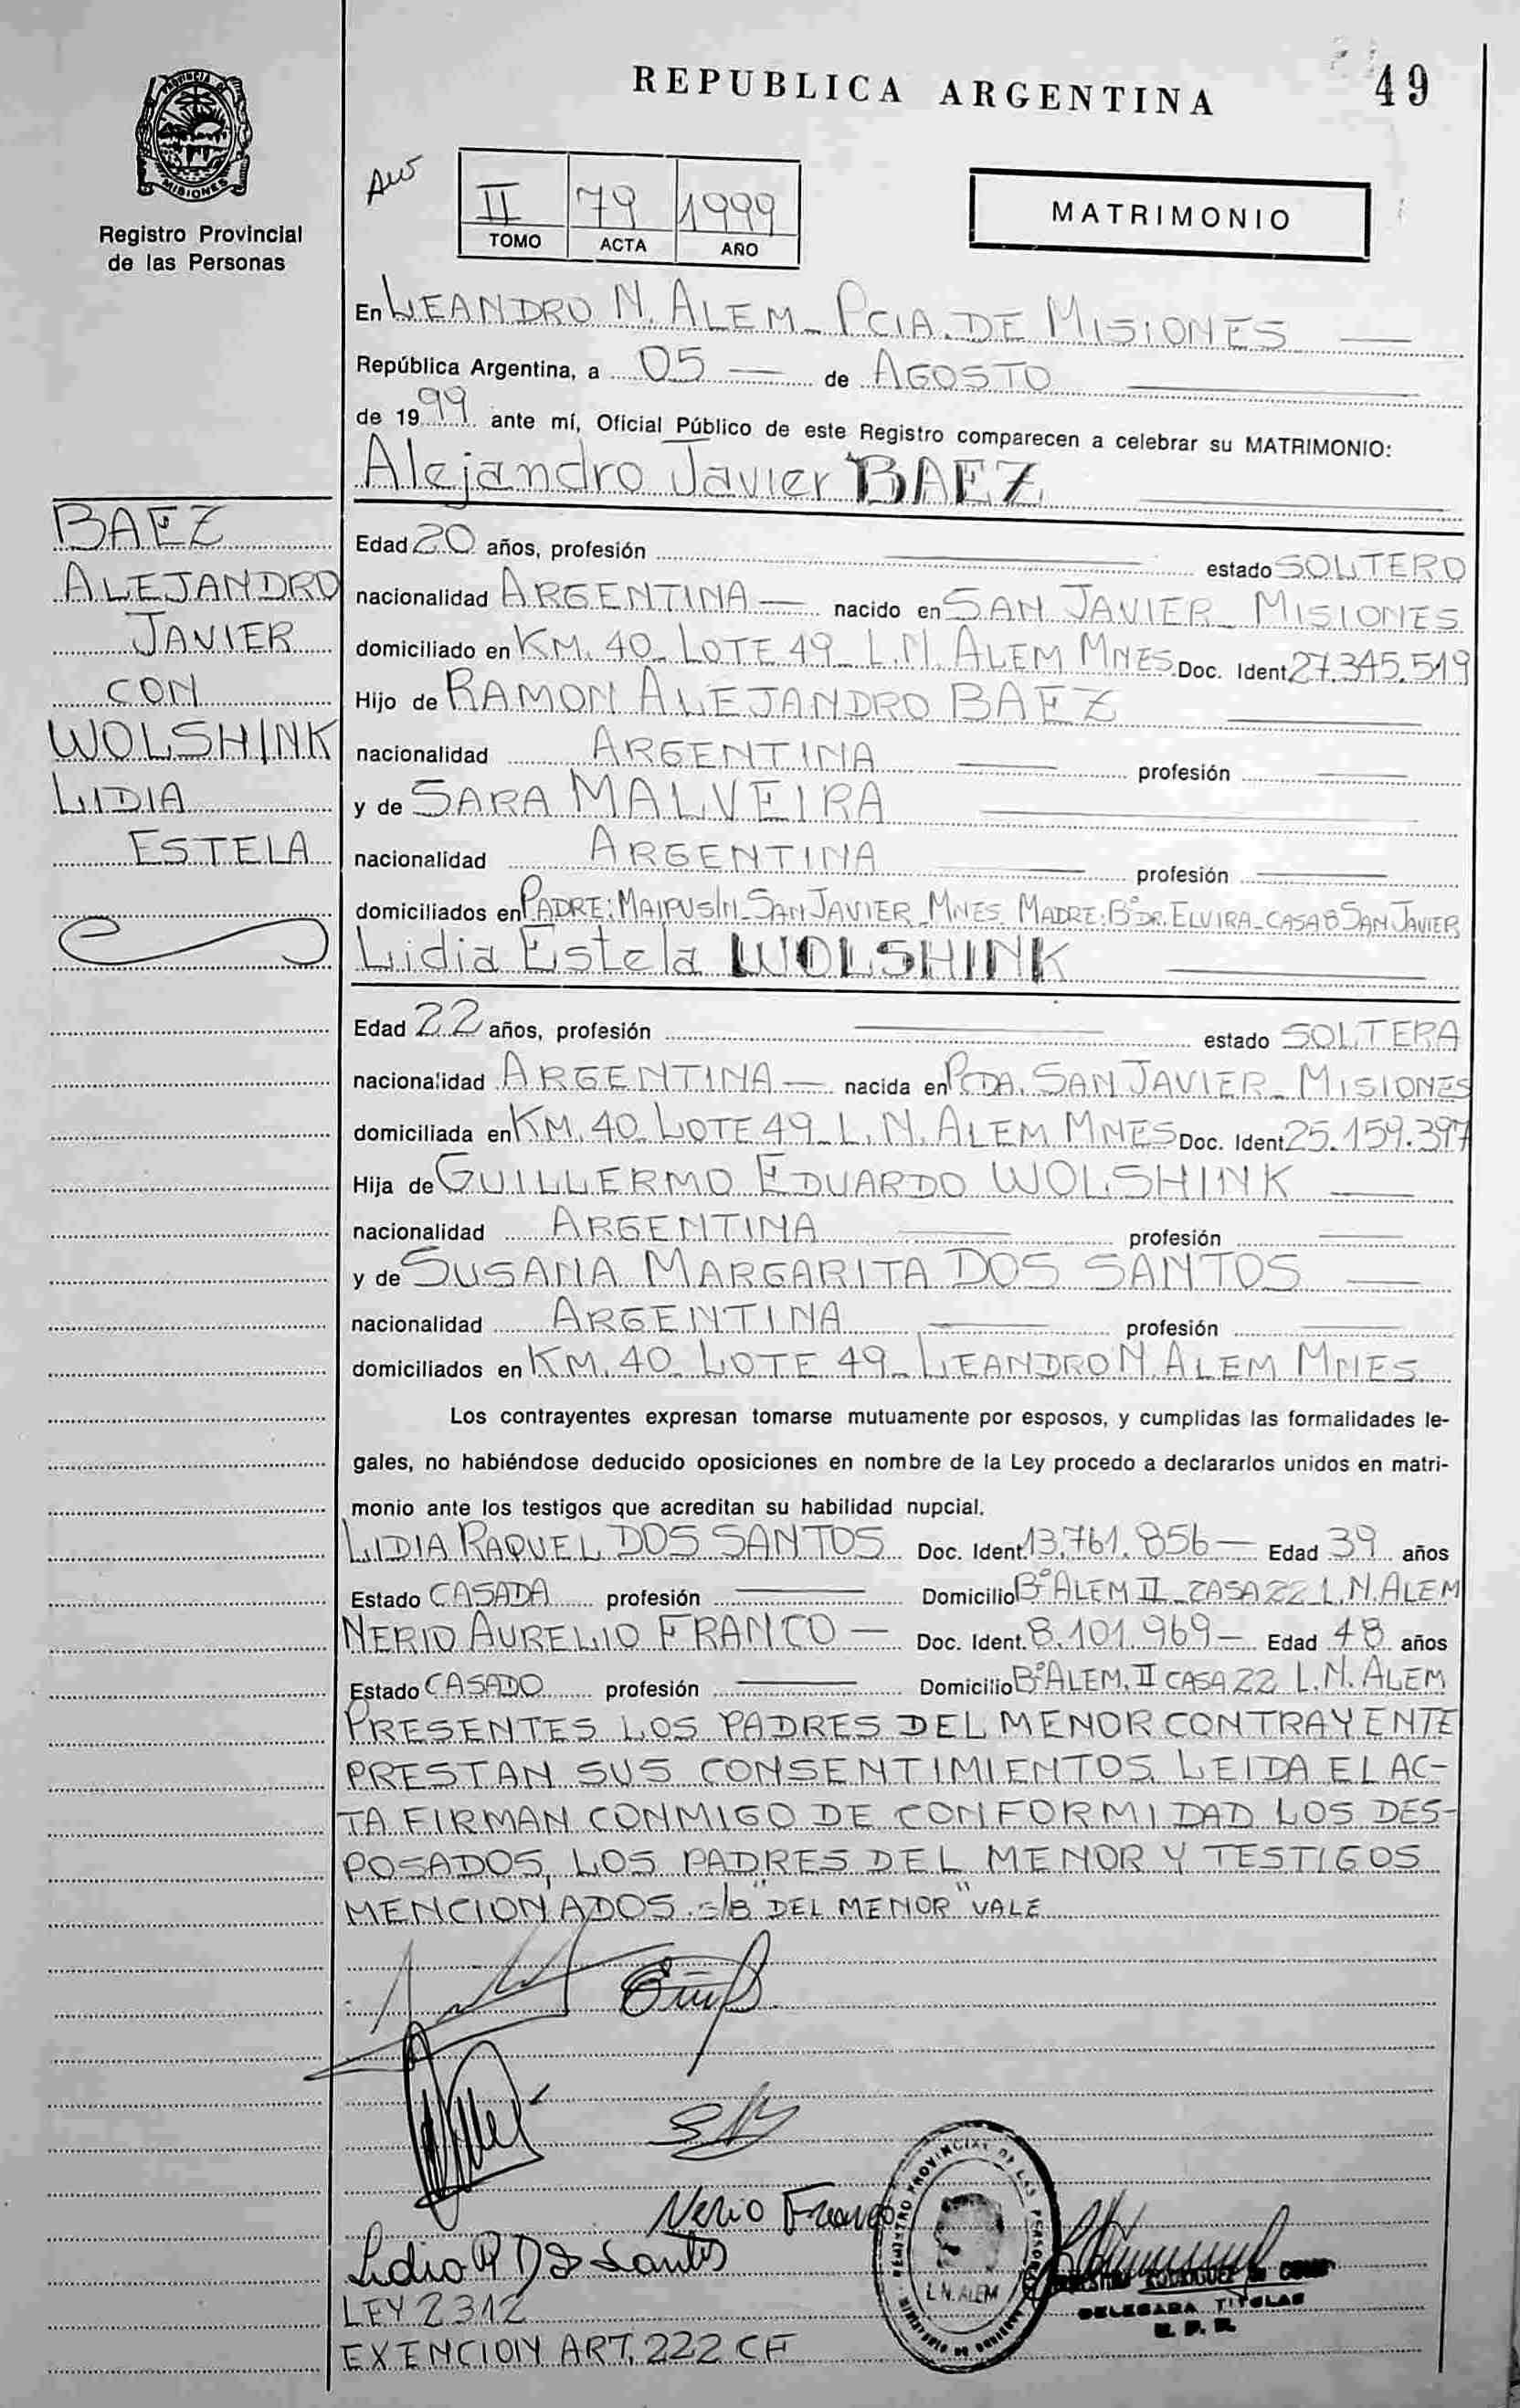 REPUBLICA ARGENTINA
49
PROVINCIA DE
MISIONES
Registro Provincial
de las Personas
II 79 1999
TOMO ACTA AÑO
MATRIMONIO
En LEANDRO N. ALEM - PCIA. DE MISIONES
República Argentina, a 05 de AGOSTO
de 1999 ante mí, Oficial Público de este Registro comparecen a celebrar su MATRIMONIO:
Alejandro Javier BAEZ
BAEZ
ALEJANDRO
JAVIER
CON
WOLSHINK
LIDIA
ESTELA
Edad 20 años, profesión estado SOLTERO
nacionalidad ARGENTINA nacido en SAN JAVIER - MISIONES
domiciliado en KM. 40 - LOTE 49 - L.N. ALEM MNES. Doc. Ident 27.345.519
Hijo de RAMON ALEJANDRO BAEZ
nacionalidad ARGENTINA profesión
y de SARA MALVEIRA
nacionalidad ARGENTINA profesión
domiciliados en PADRE: MAIPU S/N - SAN JAVIER - MNES. MADRE: Bº DR. ELVIRA - CASA 8 SAN JAVIER
Lidia Estela WOLSHINK
Edad 22 años, profesión estado SOLTERA
nacionalidad ARGENTINA nacida en PCDA. SAN JAVIER - MISIONES
domiciliada en KM. 40 - LOTE 49 - L.N. ALEM MNES Doc. Ident 25.159.397
Hija de GUILLERMO EDUARDO WOLSHINK
nacionalidad ARGENTINA profesión
y de SUSANA MARGARITA DOS SANTOS
nacionalidad ARGENTINA profesión
domiciliados en KM. 40 - LOTE 49 - LEANDRO N. ALEM MNES
Los contrayentes expresan tomarse mutuamente por esposos, y cumplidas las formalidades le-
gales, no habiéndose deducido oposiciones en nombre de la Ley procedo a declararlos unidos en matri-
monio ante los testigos que acreditan su habilidad nupcial.
LIDIA RAQUEL DOS SANTOS Doc. Ident. 13.761.856 Edad 39 años
Estado CASADA profesión Domicilio Bº ALEM II - CASA 22 L.N. ALEM
NERIO AURELIO FRANCO Doc. Ident. 8.101.969 Edad 48 años
Estado CASADO profesión Domicilio Bº ALEM. II CASA 22 L.N. ALEM
PRESENTES LOS PADRES DEL MENOR CONTRAYENTE
PRESTAN SUS CONSENTIMIENTOS. LEIDA EL AC-
TA FIRMAN CONMIGO DE CONFORMIDAD LOS DES-
POSADOS, LOS PADRES DEL MENOR Y TESTIGOS
MENCIONADOS. S/B "DEL MENOR" VALE
Nerio Franco
Lidia R Dos Santos
L.N. ALEM
DELEGADA TITULAR
LEY 2312
EXENCION ART. 222 CF